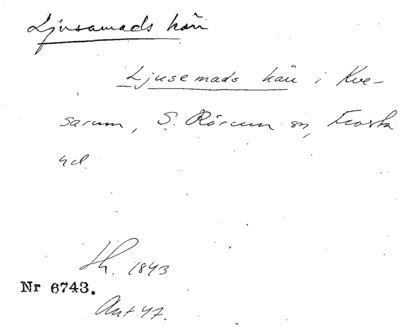 Ljusamads käll
Ljusemads käll i Kve-
sarum, S. Rörum sn, Frosta
hd.
Lh. 1843
Nr 6743.
Ant 47.